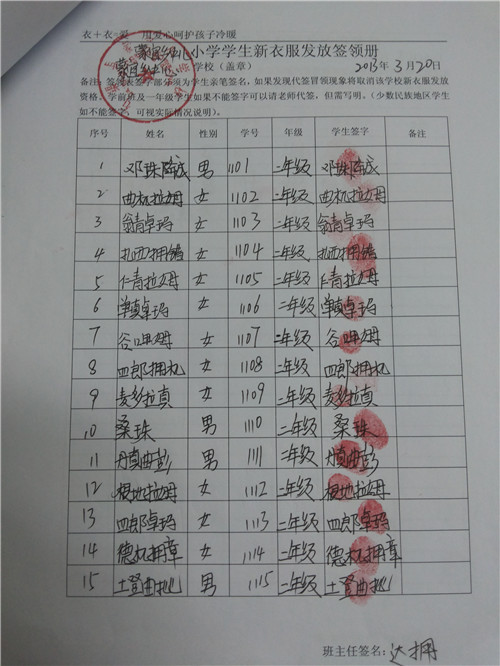 衣+衣=爱 用爱心呵护孩子冷暖
小学学生新衣服发放签领册
学校（盖章） 2013年3月20日
备注：签领表签字部分须为学生亲笔签名，如果发现代签冒领现象将取消该学校新衣服发放
资格。学前班及一年级学生如果不能签字可以请老师代签，但需写明。（少数民族地区学生
如不能签字，可视实际情况说明）。
序号 姓名 性别 学号 年级 学生签字 备注
1 邓珠 男 1101 二年级 邓珠
2 曲机拉姆 女 1102 二年级 曲机拉姆
3 翁青卓玛 女 1103 二年级 翁青卓玛
4 扎西拥 女 1104 二年级 扎西拥
5 仁青拉姆 女 1105 二年级 仁青拉姆
6 卓玛 女 1106 二年级 卓玛
7 谷呷姆 女 1107 二年级 谷呷姆
8 四郎拥机 女 1108 二年级 四郎拥机
9 麦多拉真 女 1109 二年级 麦多拉真
10 桑珠 男 1110 二年级 桑珠
11 丹真曲彭 男 1111 二年级 丹真曲彭
12 根地拉姆 女 1112 二年级 根地拉姆
13 四郎卓玛 女 1113 二年级 四郎卓玛
14 德机拥章 女 1114 二年级 德机拥章
15 土登曲批 男 1115 二年级 土登曲批
班主任签名：达拥